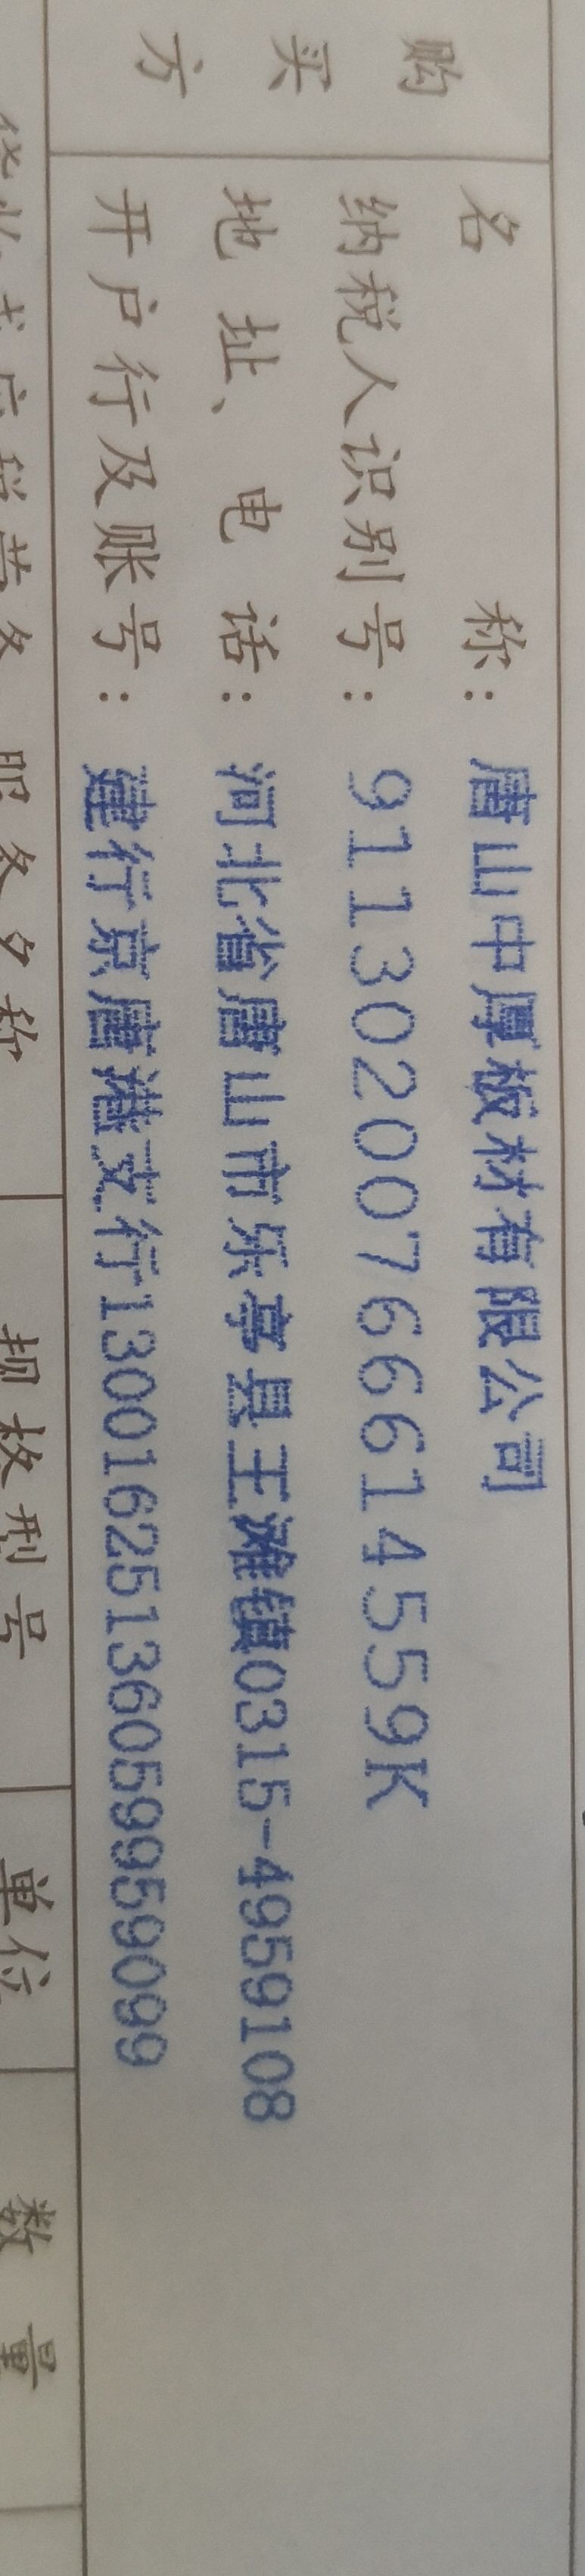 购买方
名 称：唐山中厚板材有限公司
纳税人识别号：91130200766614559K
地 址、电 话：河北省唐山市乐亭县王滩镇0315-4959108
开户行及账号：建行京唐港支行13001625136059959099
货物或应税劳务、服务名称 规格型号 单位 数 量